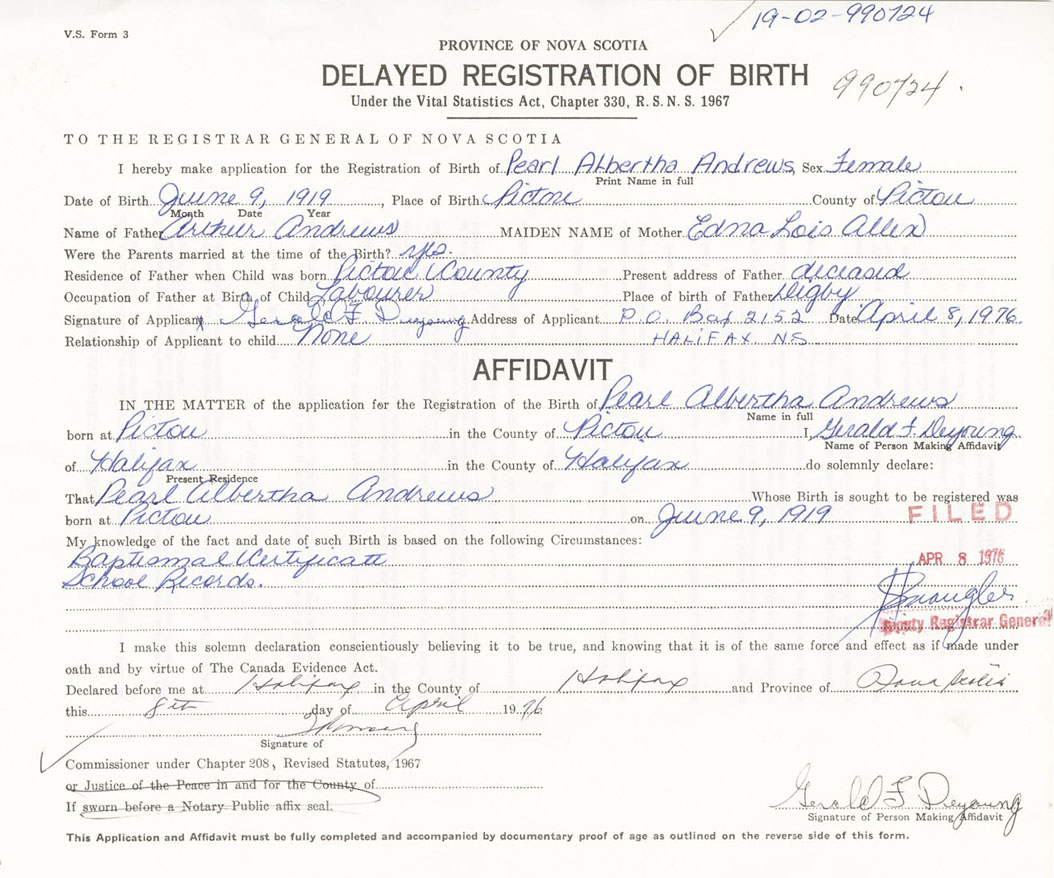 V.S. Form 3
19-02-990724
PROVINCE OF NOVA SCOTIA
DELAYED REGISTRATION OF BIRTH
990724.
Under the Vital Statistics Act, Chapter 330, R.S.N.S. 1967
TO THE REGISTRAR GENERAL OF NOVA SCOTIA
I hereby make application for the Registration of Birth of Pearl Albertha Andrews, Sex Female
Print Name in full
Date of Birth June 9, 1919, Place of Birth Pictou County of Pictou
Month Date Year
Name of Father Arthur Andrews MAIDEN NAME of Mother Edna Lois Allen
Were the Parents married at the time of the Birth? yes.
Residence of Father when Child was born Pictou County Present address of Father deceased
Occupation of Father at Birth of Child Labourer Place of birth of Father Digby
Signature of Applicant X Gerald F Deyoung Address of Applicant P.O. Box 2152 Date April 8, 1976.
Relationship of Applicant to child None HALIFAX NS
AFFIDAVIT
IN THE MATTER of the application for the Registration of the Birth of Pearl Albertha Andrews
Name in full
born at Pictou in the County of Pictou I, Gerald F. Deyoung
Name of Person Making Affidavit
of Halifax in the County of Halifax do solemnly declare:
Present Residence
That Pearl Albertha Andrews Whose Birth is sought to be registered was
born at Pictou on June 9, 1919 FILED
My knowledge of the fact and date of such Birth is based on the following Circumstances:
Baptismal Certificate APR 8 1976
School Records.
Deputy Registrar General
I make this solemn declaration conscientiously believing it to be true, and knowing that it is of the same force and effect as if made under
oath and by virtue of The Canada Evidence Act.
Declared before me at Halifax in the County of Halifax and Province of Nova Scotia
this 8th day of April 1976
Signature of
Commissioner under Chapter 208, Revised Statutes, 1967
or Justice of the Peace in and for the County of
If sworn before a Notary Public affix seal.
Gerald F Deyoung
Signature of Person Making Affidavit
This Application and Affidavit must be fully completed and accompanied by documentary proof of age as outlined on the reverse side of this form.